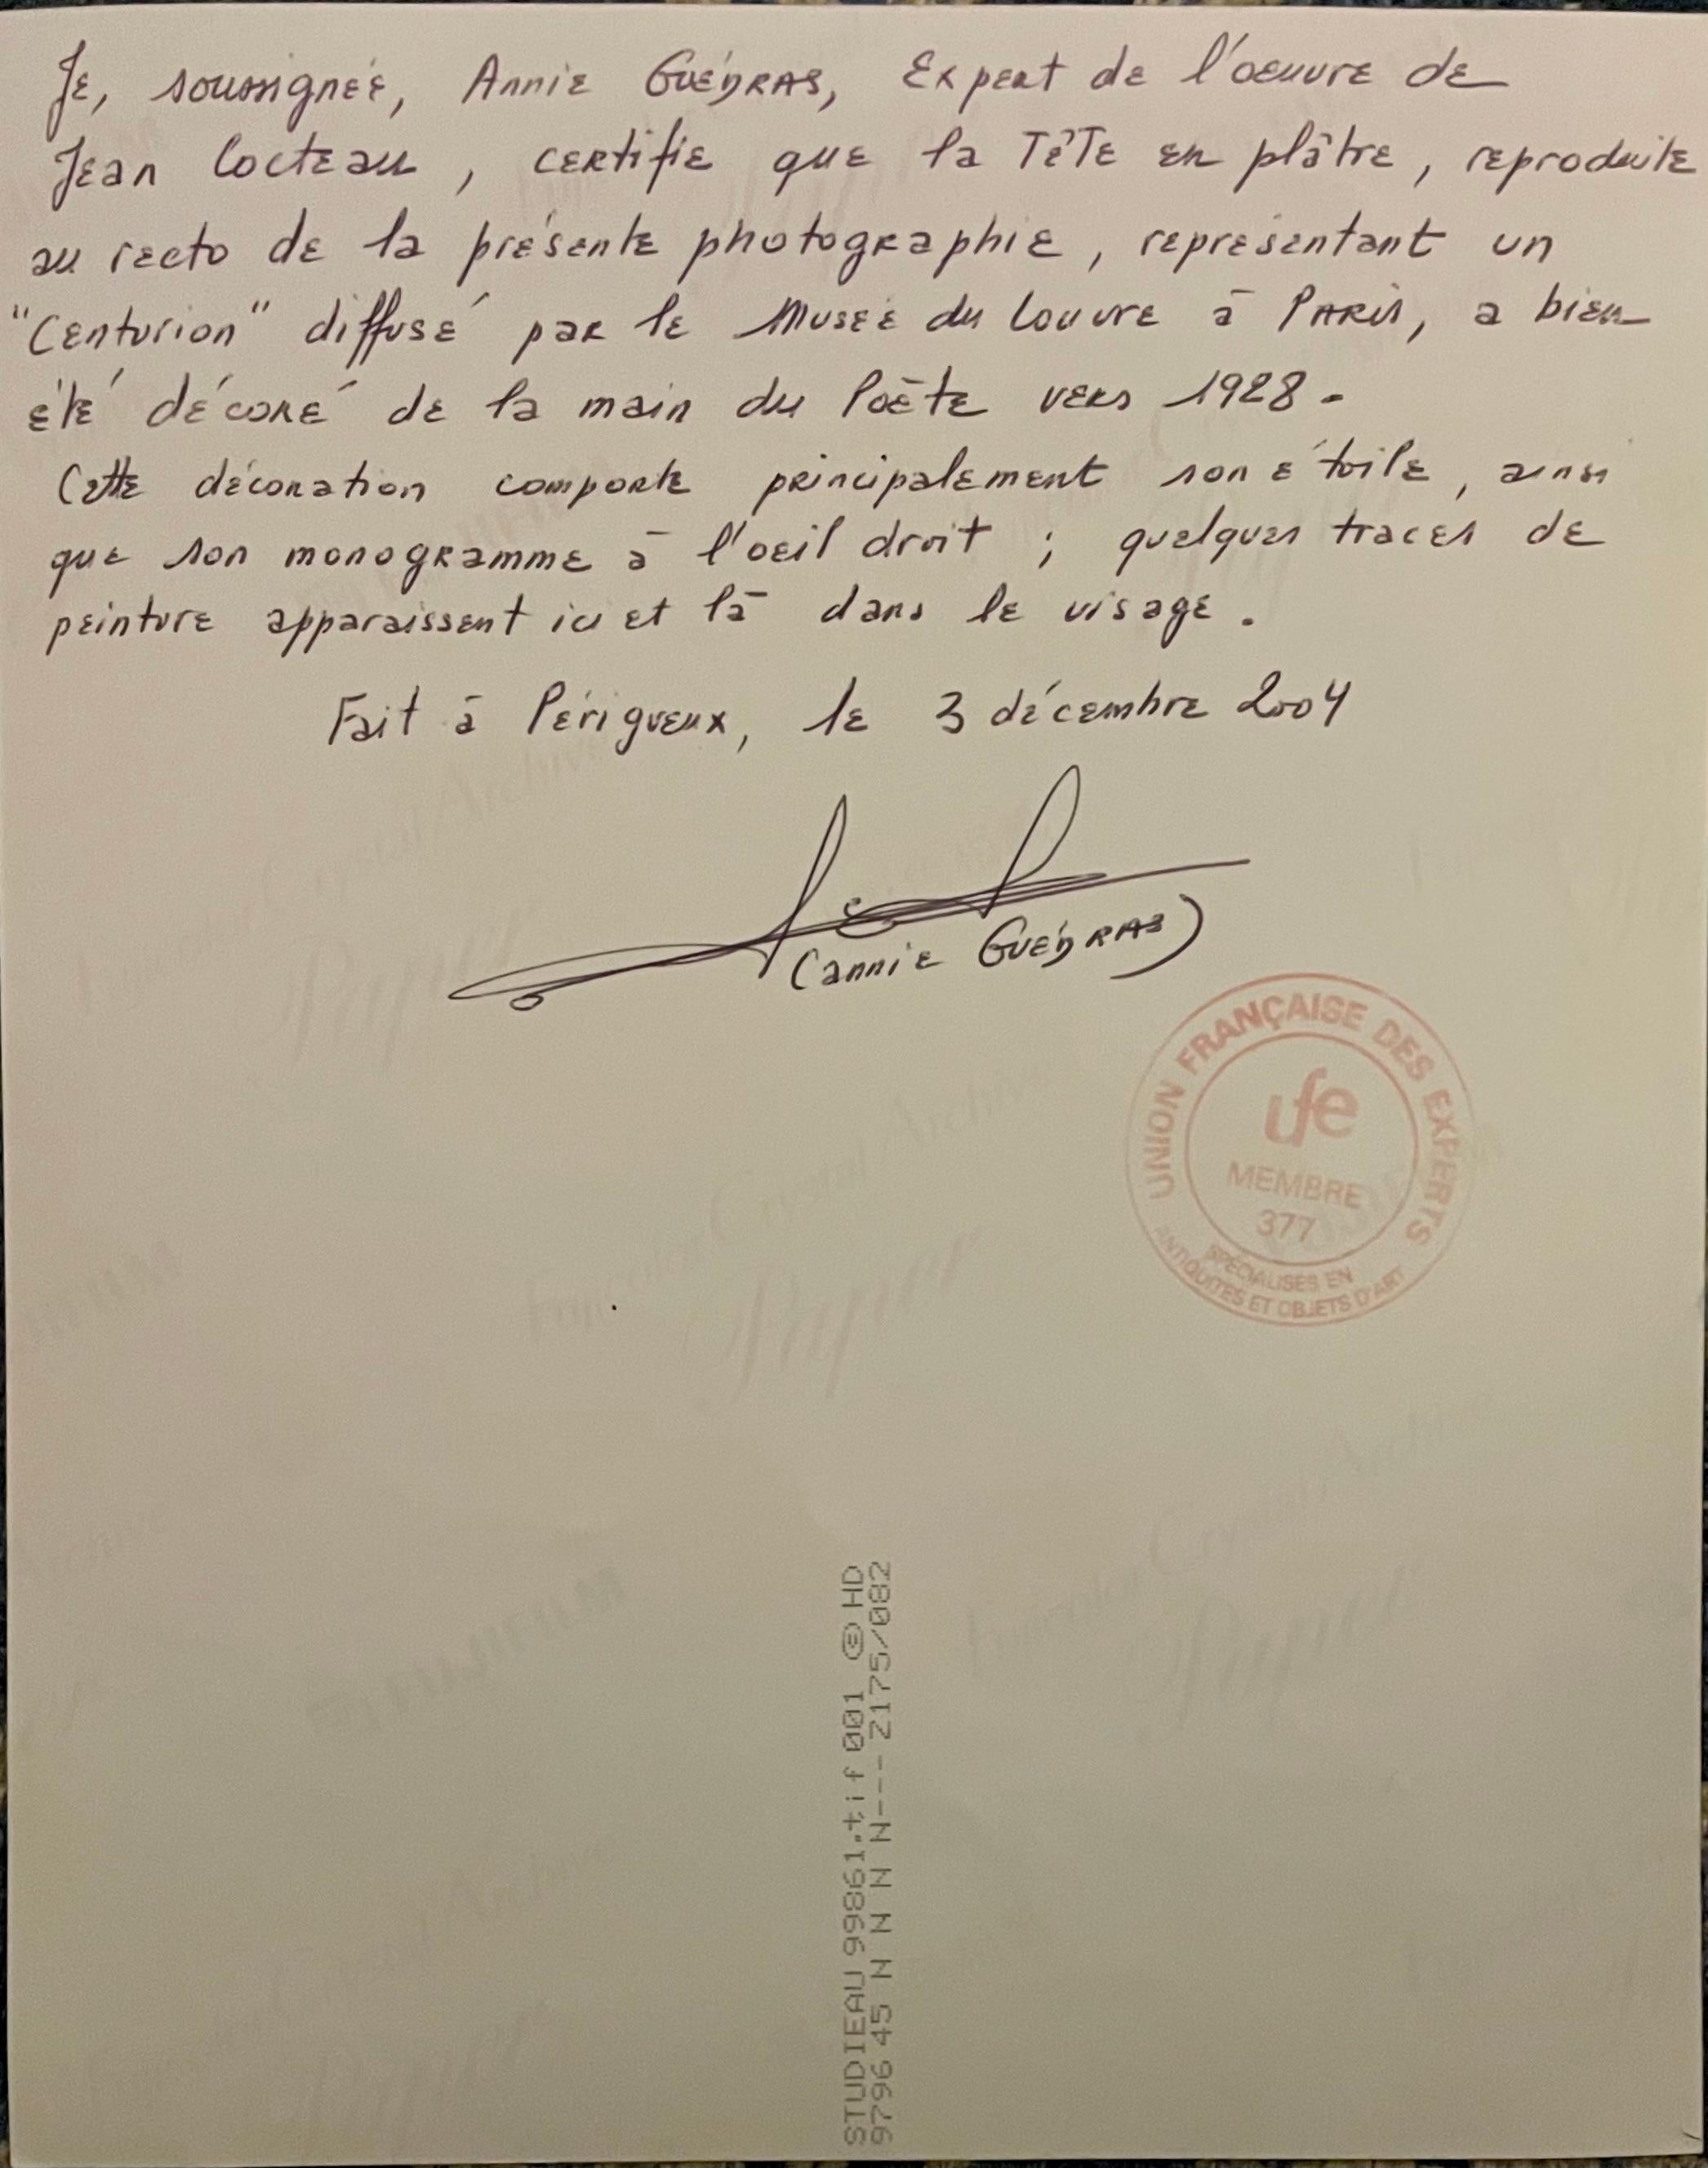 Je, soussignée, Annie GUÉDRAS, Expert de l'oeuvre de
Jean Cocteau, certifie que la Tête en plâtre, reproduite
au recto de la présente photographie, représentant un
"Centurion" diffusé par le Musée du Louvre à PARIS, a bien
été décoré de la main du Poète vers 1928.
Cette décoration comporte principalement son étoile, ainsi
que son monogramme à l'oeil droit ; quelques traces de
peinture apparaissent ici et là dans le visage.
Fait à Périgueux, le 3 décembre 2004
(Annie GUÉDRAS)
UNION FRANÇAISE DES EXPERTS
ufe
MEMBRE
377
SPÉCIALISÉS EN
ANTIQUITÉS ET OBJETS D'ART
Fujicolor Crystal Archive
Paper
FUJIFILM
STUDIEAU 99861.tif 001 HD
9796 45 N N N N--- 2175/082